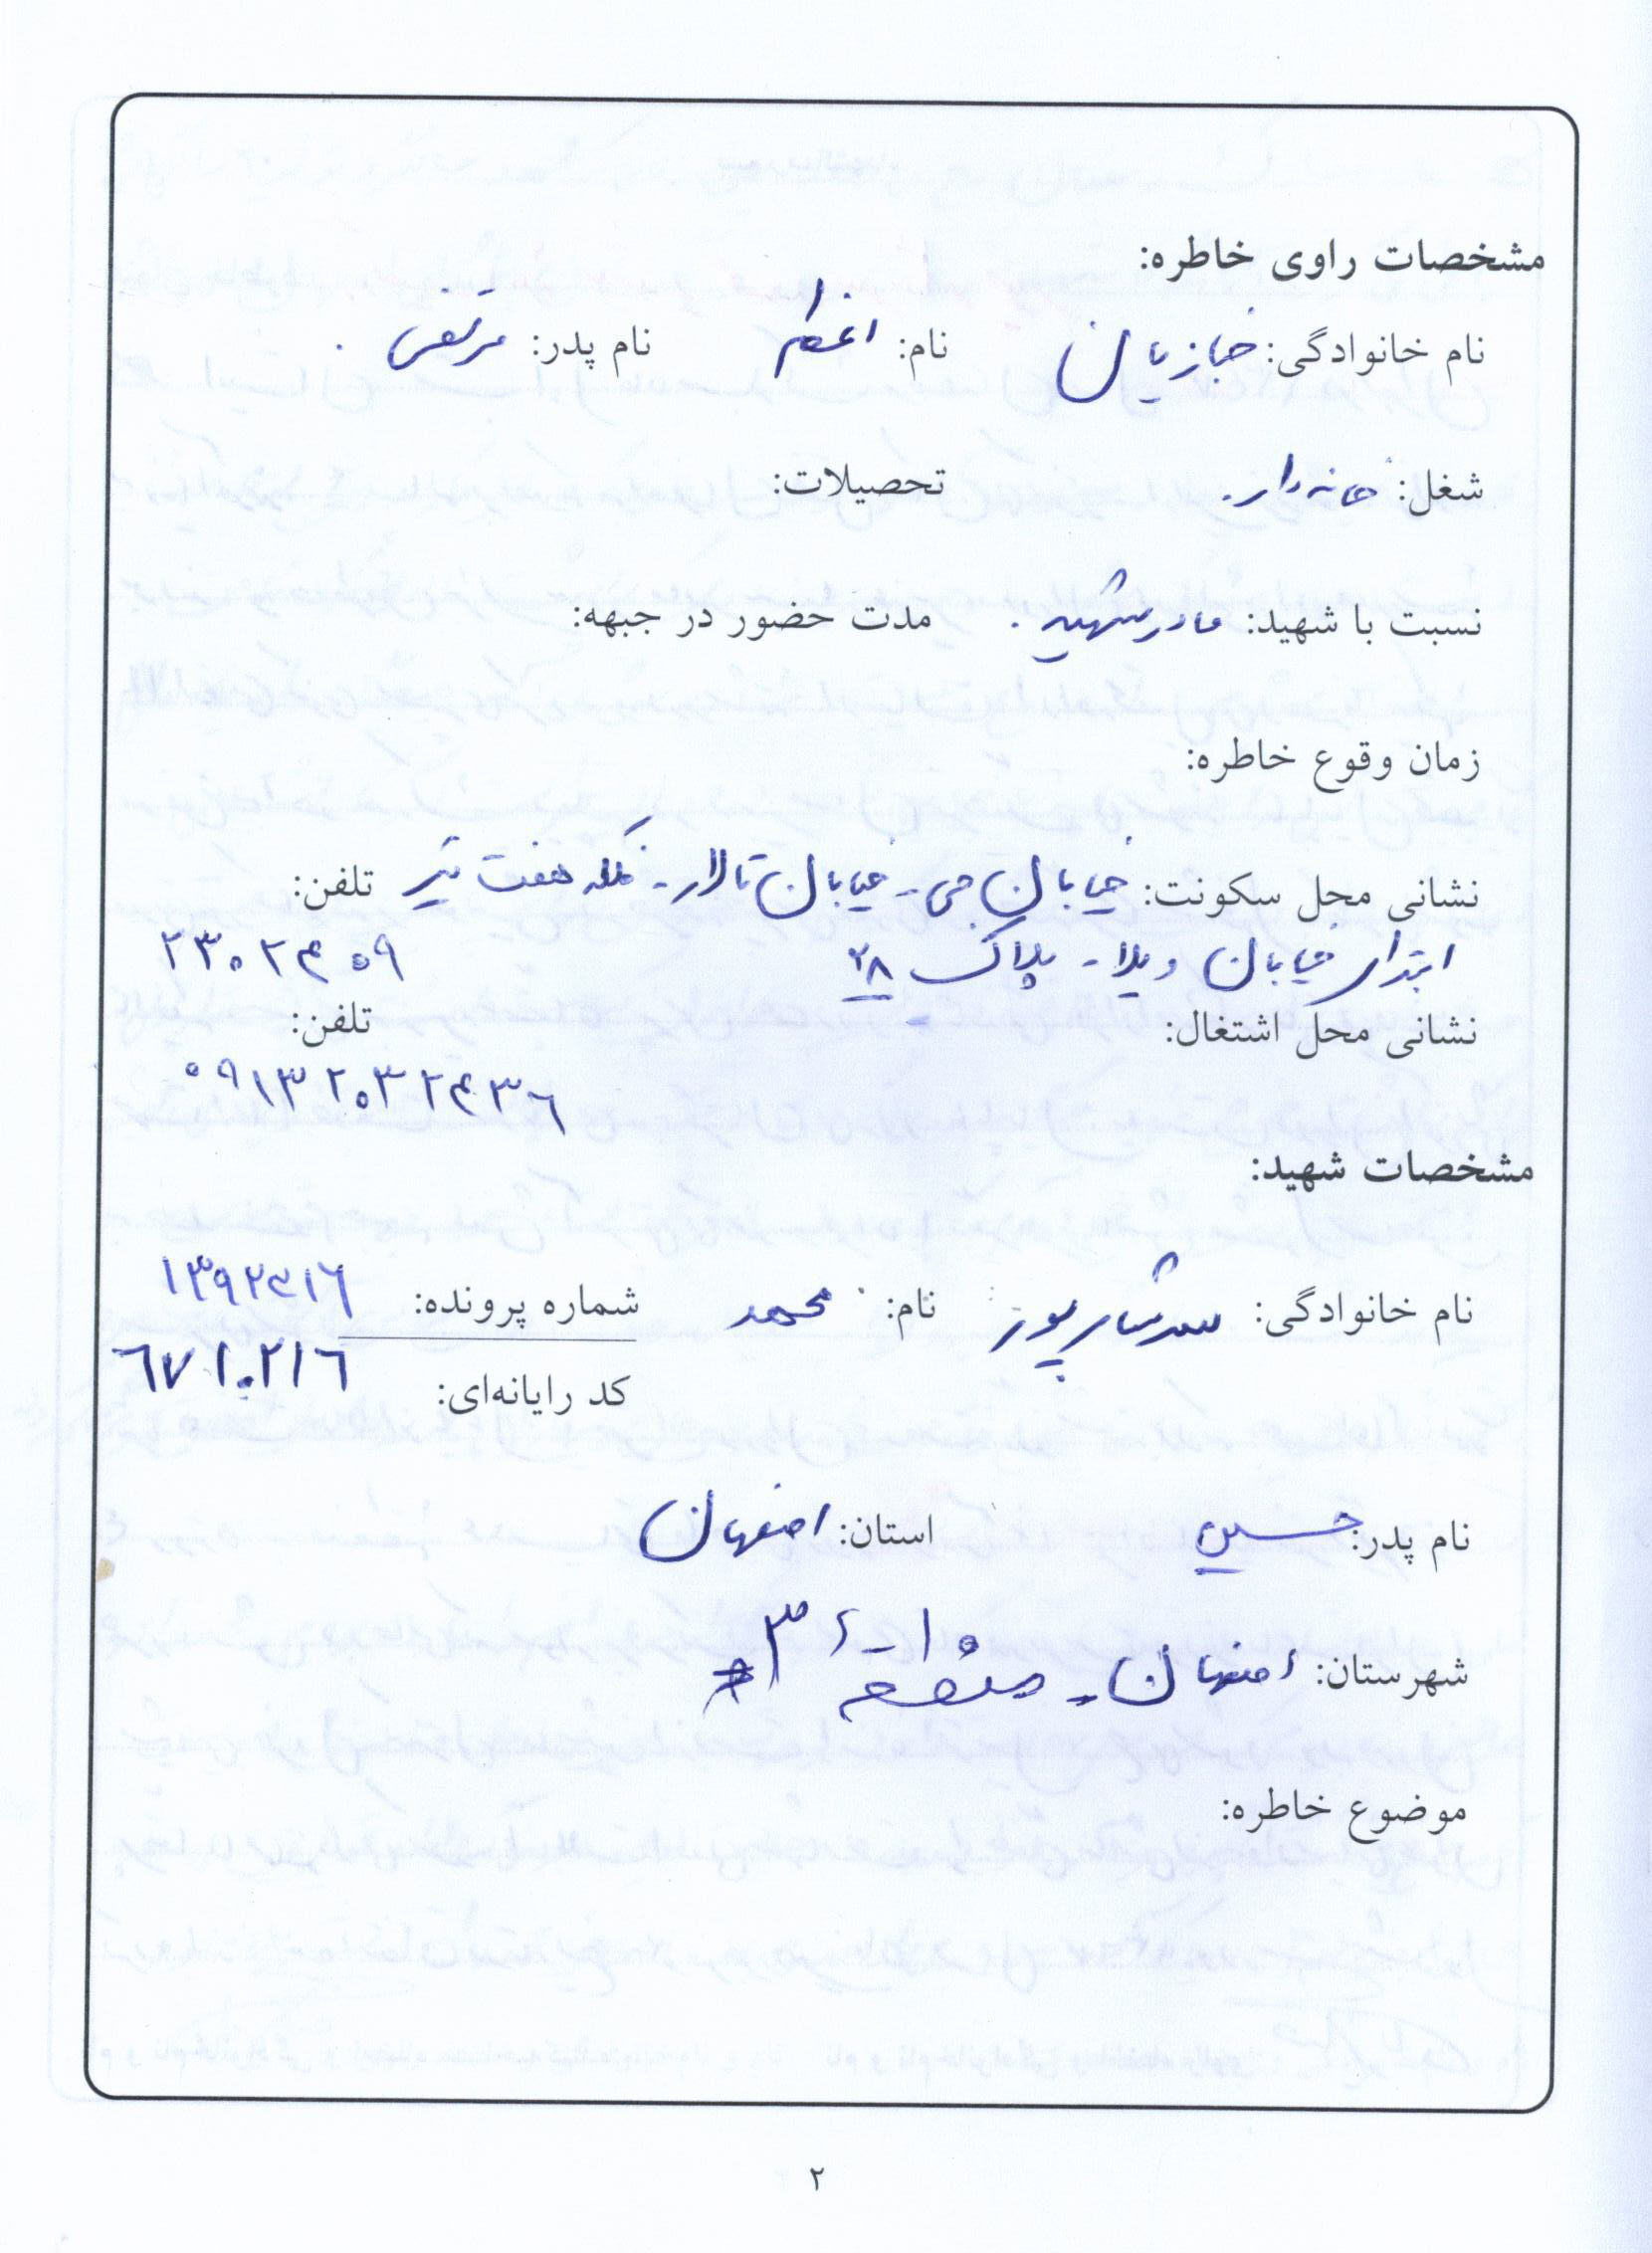 مشخصات راوی خاطره:
نام خانوادگی: خبازیان نام: اعظم نام پدر: مرتضی
شغل: خانه‌دار. تحصیلات:
نسبت با شهید: مادر شهید. مدت حضور در جبهه:
زمان وقوع خاطره:
نشانی محل سکونت: خیابان جی - خیابان تالار - فلکه هفت تیر تلفن:
ابتدای خیابان ویلا - پلاک ۲۸ ۲۳۰۲۴۵۹
نشانی محل اشتغال: تلفن:
۰۹۱۳۲۰۳۲۴۳۶
مشخصات شهید:
نام خانوادگی: نام: محمد شماره پرونده: ۱۳۹۲۴۱۶
کد رایانه‌ای: ۶۷۱۰۲۱۶
نام پدر: حسین استان: اصفهان
شهرستان: اصفهان - منطقه ۳
موضوع خاطره:
۲